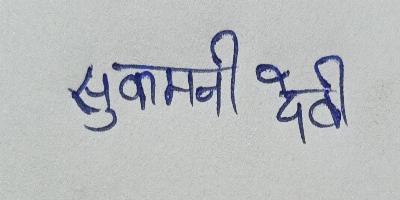 सुकामनी देवी